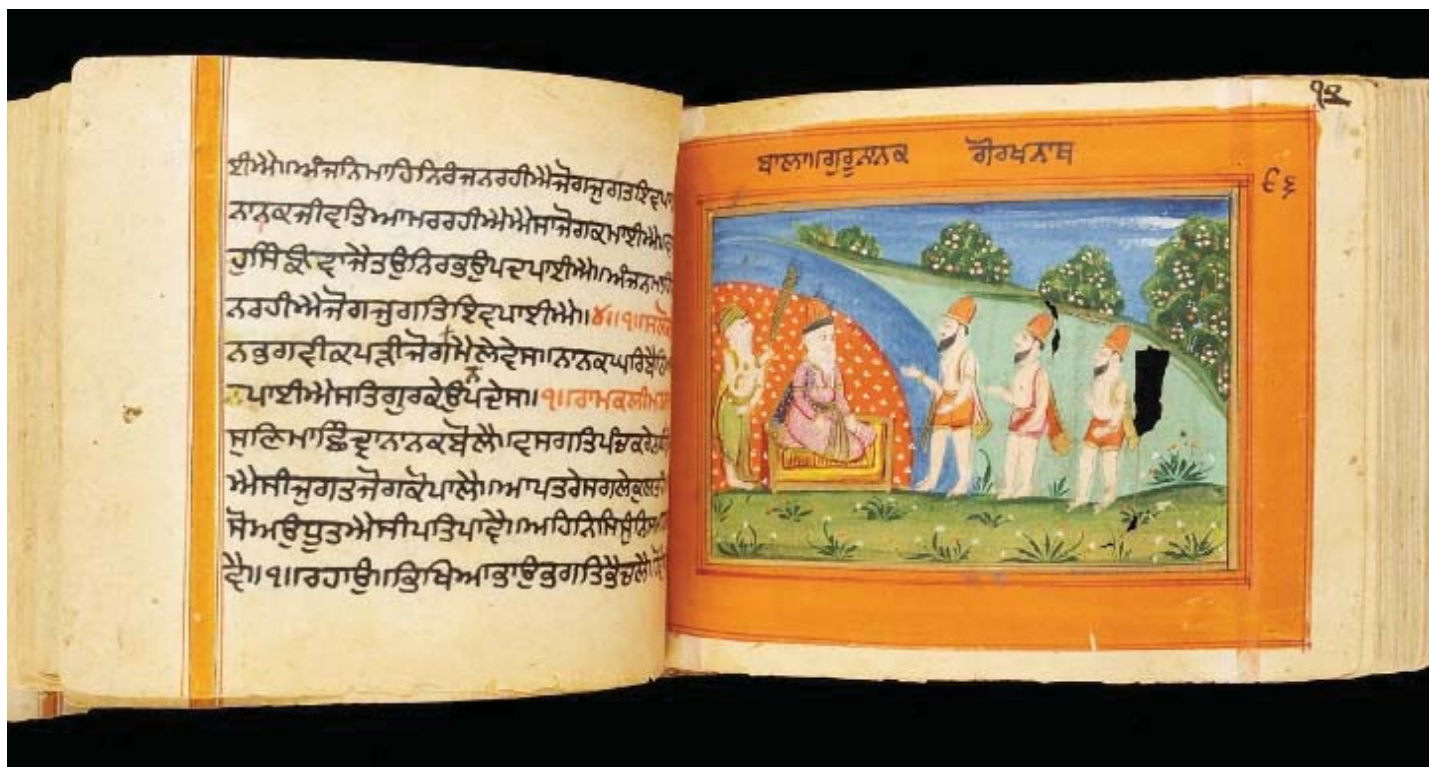 ਈਐ॥ਅੰਜਨਿਮਾਹਿਨਿਰੰਜਨਰਹੀਐਜੋਗਜੁਗਤਇਵਪਾ
ਨਾਨਕਜੀਵਤਿਆਮਰਰਹੀਐਐਸਾਜੋਗਕਮਾਈਐ॥
ਹੁਸਿੰਙੀਵਾਜੈਤਉਨਿਰਭਉਪਦਪਾਈਐ॥ਅੰਜਨਮਾਹਿ
ਨਰਹੀਐਜੋਗਜੁਗਤਿਇਵਪਾਈਐ॥੪॥੧॥ਸਲੋਕ
ਨਭਗਵੀਕਪੜੀਜੋਗਨਮੈਲੇਵੇਸ॥ਨਾਨਕਘਰਿਬੈਠਿ
ਪਾਈਐਸਤਿਗੁਰਕੇਉਪਦੇਸ॥੧॥ਰਾਮਕਲੀਮਹਲਾ
ਸੁਣਿਮਾਛਿੰਦ੍ਰਾਨਾਨਕਬੋਲੈ॥ਵਸਗਤਿਪੰਚਕਰੇ
ਐਸੀਜੁਗਤਜੋਗਕੋਪਾਲੈ॥ਆਪਤਰੇਸਗਲੇਕੁਲਤਾਰੇ
ਸੋਅਉਧੂਤਐਸੀਪਤਿਪਾਵੈ॥ਅਹਿਨਿਸਿਸੁੰਨਿ
ਵੈ॥੧॥ਰਹਾਉ॥ਭਿਖਿਆਭਾਉਭਗਤਿਭੈਚਲੈ
੧੨
ਬਾਲਾ॥ਗੁਰੂਨਾਨਕ ਗੋਰਖਨਾਥ
੯੬